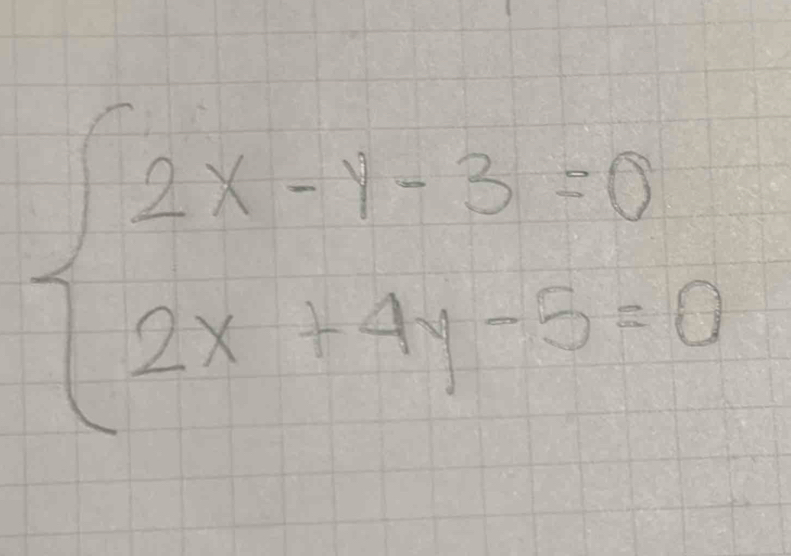 2x - y - 3 = 0
2x + 4y - 5 = 0